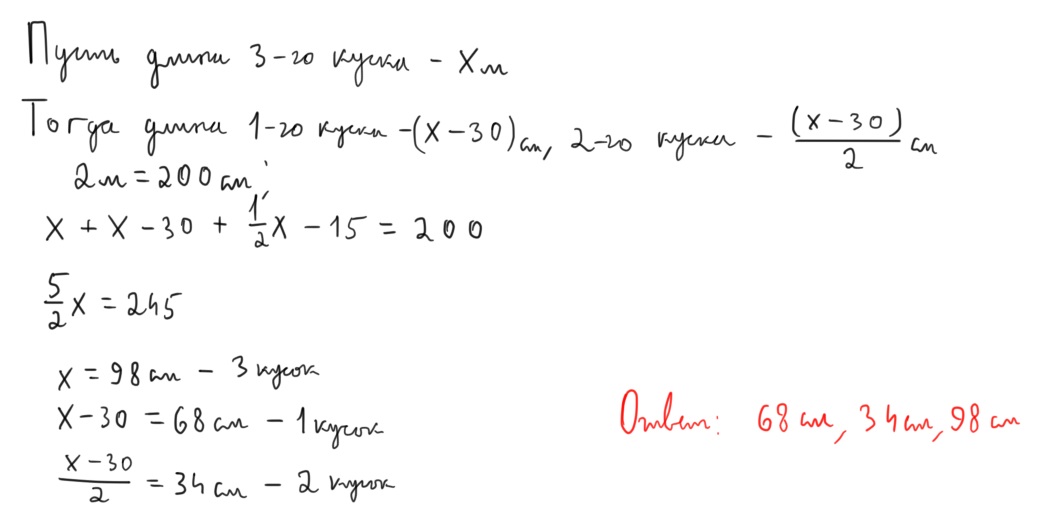 Пусть длина 3-го куска - X м
Тогда длина 1-го куска -(X-30) см, 2-го куска - (x-30)/2 см
2м = 200 см;
X + X - 30 + 1/2 X - 15 = 200
5/2 X = 245
x = 98 см - 3 кусок
X-30 = 68 см - 1 кусок
(x-30)/2 = 34 см - 2 кусок
Ответ: 68 см, 34 см, 98 см